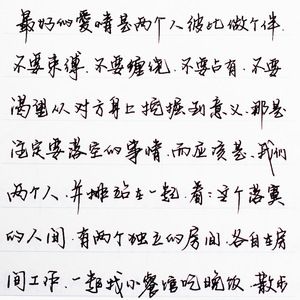 最好的愛情是两个人彼此做个伴.
不要束缚.不要缠绕.不要占有.不要
渴望从对方身上挖掘到意义.那是
注定要落空的事情.而应该是.我们
两个人.并排站在一起.看看这个落寞
的人间.有两个独立的房间.各自在房
间工作.一起找小餐馆吃晚饭.散步